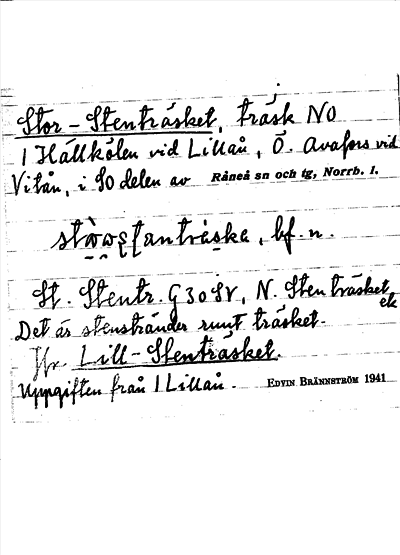 Stor-Stenträsket, träsk NO
1 Hällkölen vid Lillån, Ö. Avafors vid
Vitån, i SO delen av Råneå sn och tg, Norrb. l.
bf. n.
St. Stentr. G30SV, N. Stenträsket ek
Det är stenstränder runt träsket.
Jfr. Lill-Stenträsket.
Uppgiften från 1 Lillån. EDVIN BRÄNNSTRÖM 1941